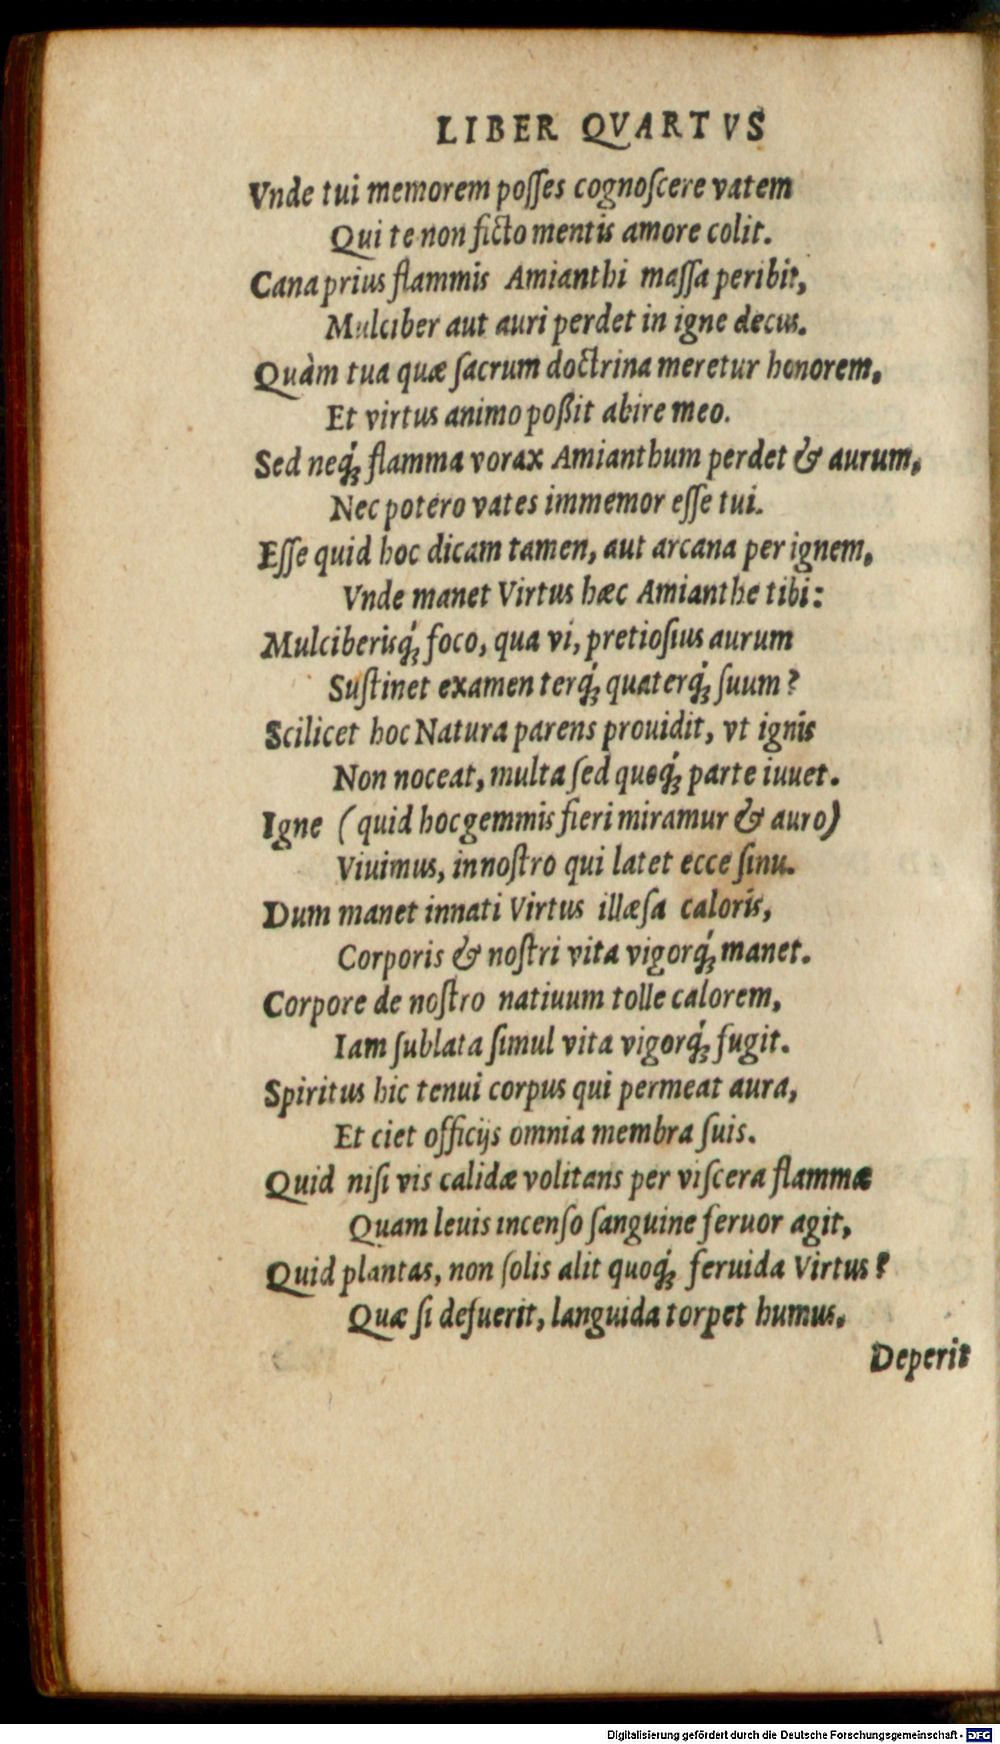 LIBER QVARTVS
Vnde tui memorem poſſes cognoſcere vatem
Qui te non ficto mentis amore colit.
Cana prius flammis Amianthi maſſa peribit,
Mulciber aut auri perdet in igne decus.
Quàm tua quæ ſacrum doctrina meretur honorem,
Et virtus animo poßit abire meo.
Sed neq́; flamma vorax Amianthum perdet & aurum,
Nec potero vates immemor eſſe tui.
Eſſe quid hoc dicam tamen, aut arcana per ignem,
Vnde manet Virtus hæc Amianthe tibi:
Mulciberisq́; foco, qua vi, pretioſius aurum
Suſtinet examen terq́; quaterq́; ſuum?
Scilicet hoc Natura parens prouidit, vt ignis
Non noceat, multa ſed quoq́; parte iuuet.
Igne (quid hoc gemmis fieri miramur & auro)
Viuimus, in noſtro qui latet ecce ſinu.
Dum manet innati Virtus illæſa caloris,
Corporis & noſtri vita vigorq́; manet.
Corpore de noſtro natiuum tolle calorem,
Iam ſublata ſimul vita vigorq́; fugit.
Spiritus hic tenui corpus qui permeat aura,
Et ciet officijs omnia membra ſuis.
Quid niſi vis calidæ volitans per viſcera flammæ
Quam leuis incenſo ſanguine feruor agit,
Quid plantas, non ſolis alit quoq́; feruida Virtus?
Quæ ſi defuerit, languida torpet humus.
Deperit
Digitalisierung gefördert durch die Deutsche Forschungsgemeinschaft - DFG